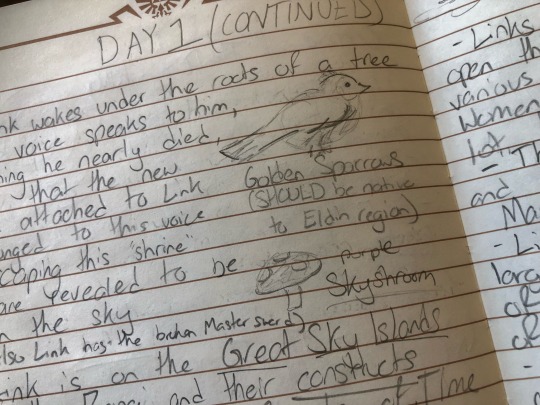 DAY 1 (CONTINUED)
nk wakes under the roots of a tree
voice speaks to him,
ing he nearly died,
that the new
attached to Link
nged to this voice
caping this "shrine"
are revealed to be
n the sky
also Link has the broken Master Sword)
ink is on the Great Sky Islands
and their constructs
Time
Golden Sparrows
(SHOULD be native
to Eldin region)
purple
Skyshroom
- Links
open th
various
women
lot
- Th
and
Ma
- Li
larg
of